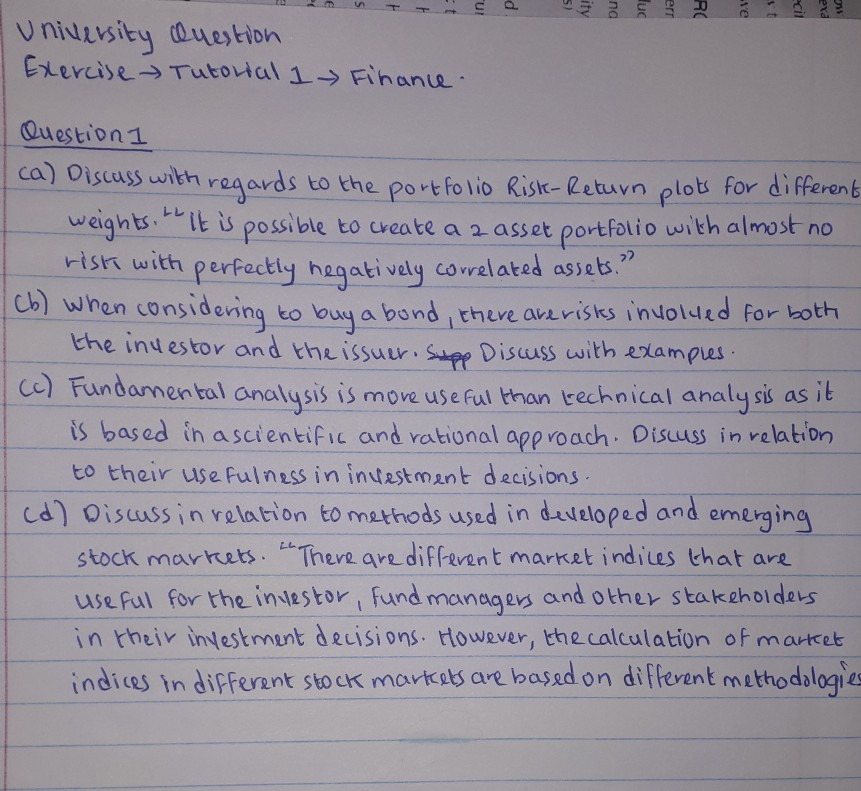 University Question
Exercise → Tutorial 1 → Finance.
Question 1
(a) Discuss with regards to the portfolio Risk-Return plots for different
weights. "It is possible to create a 2 asset portfolio with almost no
risk with perfectly negatively correlated assets."
(b) When considering to buy a bond, there are risks involved for both
the investor and the issuer. Discuss with examples.
(c) Fundamental analysis is more useful than technical analysis as it
is based in a scientific and rational approach. Discuss in relation
to their usefulness in investment decisions.
(d) Discuss in relation to methods used in developed and emerging
stock markets. "There are different market indices that are
useful for the investor, fund managers and other stakeholders
in their investment decisions. However, the calculation of market
indices in different stock markets are based on different methodologies